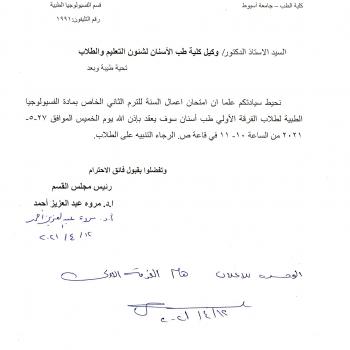 كلية الطب - جامعة أسيوط
قسم الفسيولوجيا الطبية
رقم التليفون: ١٩٩٦
السيد الاستاذ الدكتور/ وكيل كلية طب الأسنان لشئون التعليم والطلاب
تحية طيبة وبعد
نحيط سيادتكم علما ان امتحان اعمال السنة للترم الثاني الخاص بمادة الفسيولوجيا
الطبية لطلاب الفرقة الأولي طب أسنان سوف يعقد بإذن الله يوم الخميس الموافق ٢٧-٥-
٢٠٢١ من الساعة ١٠-١١ في قاعة ص. الرجاء التنبيه على الطلاب.
وتفضلوا بقبول فائق الاحترام
رئيس مجلس القسم
ا.د. مروه عبد العزيز أحمد
ا.د. مروه عبد العزيز أحمد
٢٠٢١/٤/١٢
هام
٢٠٢١/٤/١٢